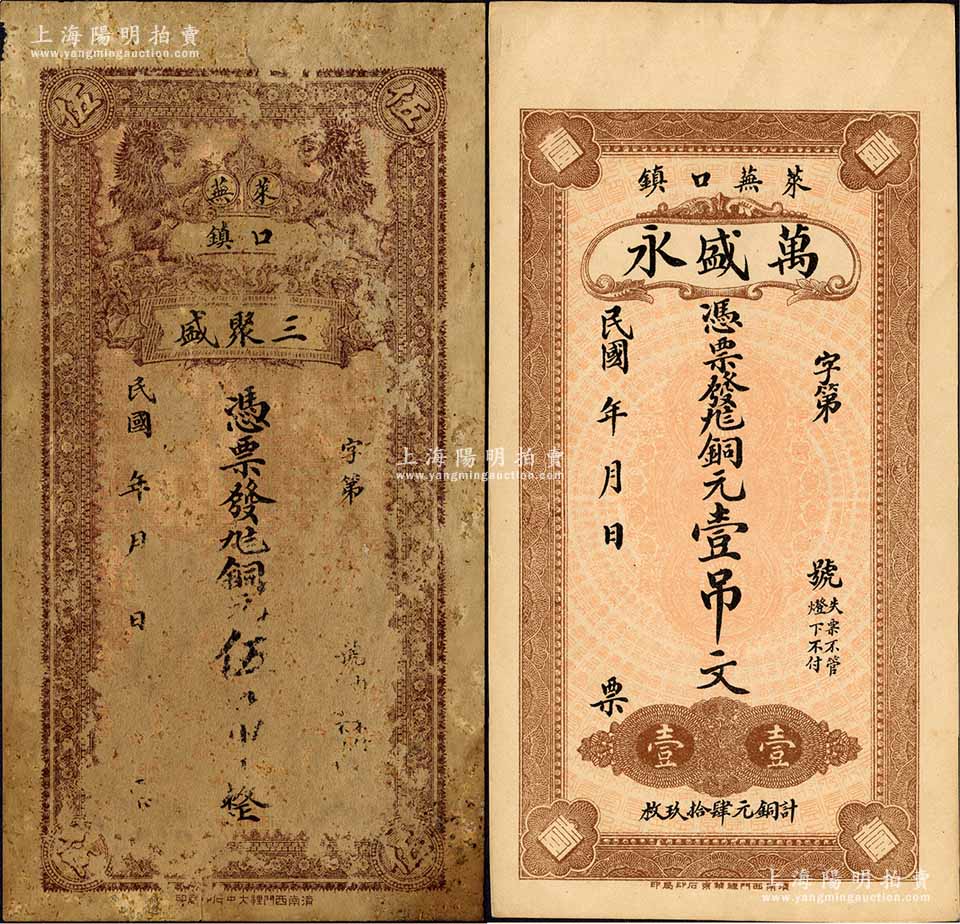 上海陽明拍賣
www.yangmingauction.com
伍
伍
萊蕪
口鎮
三聚盛
字第
號
憑票發兌銅元伍
整
民國 年 月 日
上海陽明拍賣
www.yangmingauction.com
壹
壹
萊蕪口鎮
萬盛永
字第 號
失票不管
燈下不付
憑票發兌銅元壹吊文
民國 年 月 日 票
壹 壹
計銅元肆拾玖枚
壹
壹
上海陽明拍賣
www.yangmingauction.com
上海陽明拍賣
www.yangmingauction.com